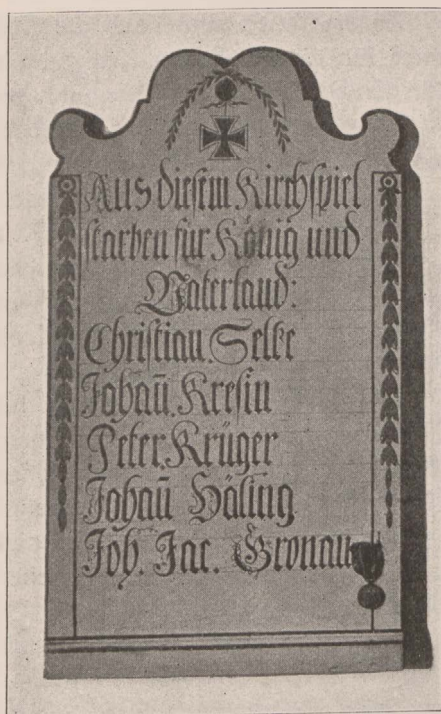 Aus diesem Kirchspiel
starben für König und
Vaterland:
Christian. Selke
Johan̄. Kresin
Peter. Krüger
Johan̄ Häling
Joh. Jac. Gronau